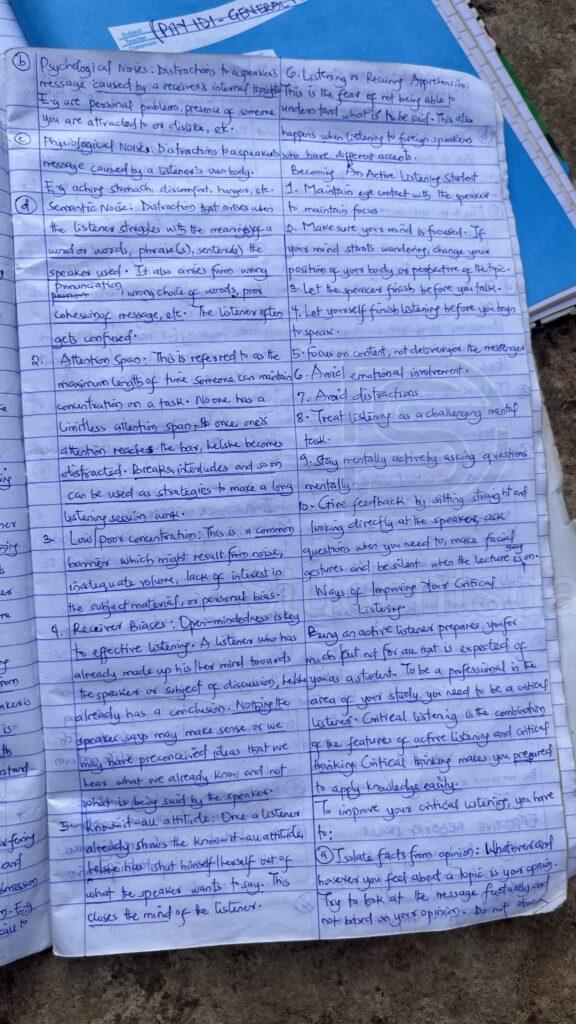 (PHY 101 - GENERAL
Subject
Teacher
Classroom
(b) Psychological Noises: Distractions to a speaker's
message caused by a receiver's internal thoughts
E.g are personal problems, presence of someone
you are attracted to or dislike, etc.
(c) Physiological Noises: Distractions to a speaker's
message caused by a listener's own body.
E.g aching stomach, discomfort, hunger, etc.
(d) Semantic Noise: Distraction that arises when
the listener struggles with the meaning of a
word or words, phrase(s), sentence(s) the
speaker used. It also arises from wrong
Pronunciation
, wrong choice of words, poor
cohesion of message, etc. The listener often
gets confused.
2. Attention Span: This is referred to as the
maximum length of time someone can maintain
concentration on a task. No one has a
limitless attention span, so once one's
attention reaches the bar, he/she becomes
distracted. Breaks, interludes and so on
can be used as strategies to make a long
listening session work.
3. Low/poor concentration: This is a common
barrier which might result from noise,
inadequate volume, lack of interest in
the subject material, or personal bias.
4. Receiver Biases: Open-mindedness is key
to effective listening. A listener who has
already made up his/her mind towards
the speaker or subject of discussion, he/she
already has a conclusion. Nothing the
speaker says may make sense or we
may have preconceived ideas that we
hear what we already know and not
what is being said by the speaker.
5. Know-it-all attitude: Once a listener
already shows the know-it-all attitude,
he/she has shut himself/herself out of
what the speaker wants to say. This
closes the mind of the listener.
6. Listening or Receiving Apprehension:
This is the fear of not being able to
understand what is to be said. This also
happens when listening to foreign speakers
who have different accents.
Becoming An Active Listening Student
1. Maintain eye contact with the speaker
to maintain focus.
2. Make sure your mind is focused. If
your mind starts wandering, change your
position of your body or perspective of the topic.
3. Let the speaker finish before you talk.
4. Let yourself finish listening before you begin
to speak.
5. Focus on content, not delivery or the messenger
6. Avoid emotional involvement.
7. Avoid distractions
8. Treat listening as a challenging mental
task.
9. Stay mentally active by asking questions
mentally.
10. Give feedback by sitting straight and
looking directly at the speaker, ask
questions when you need to, make facial
gestures and be silent when the lecture is going
on.
Ways of Improving Your Critical
Listening.
Being an active listener prepares you for
much but not for all that is expected of
you as a student. To be a professional in the
area of your study, you need to be a critical
listener. Critical listening is the combination
of the features of active listening and critical
thinking. Critical thinking makes you prepared
to apply knowledge easily.
To improve your critical listening, you have
to:
(a) Isolate facts from opinion: Whatever and
however you feel about a topic is your opinion.
Try to look at the message factually and
not based on your opinion. Do not